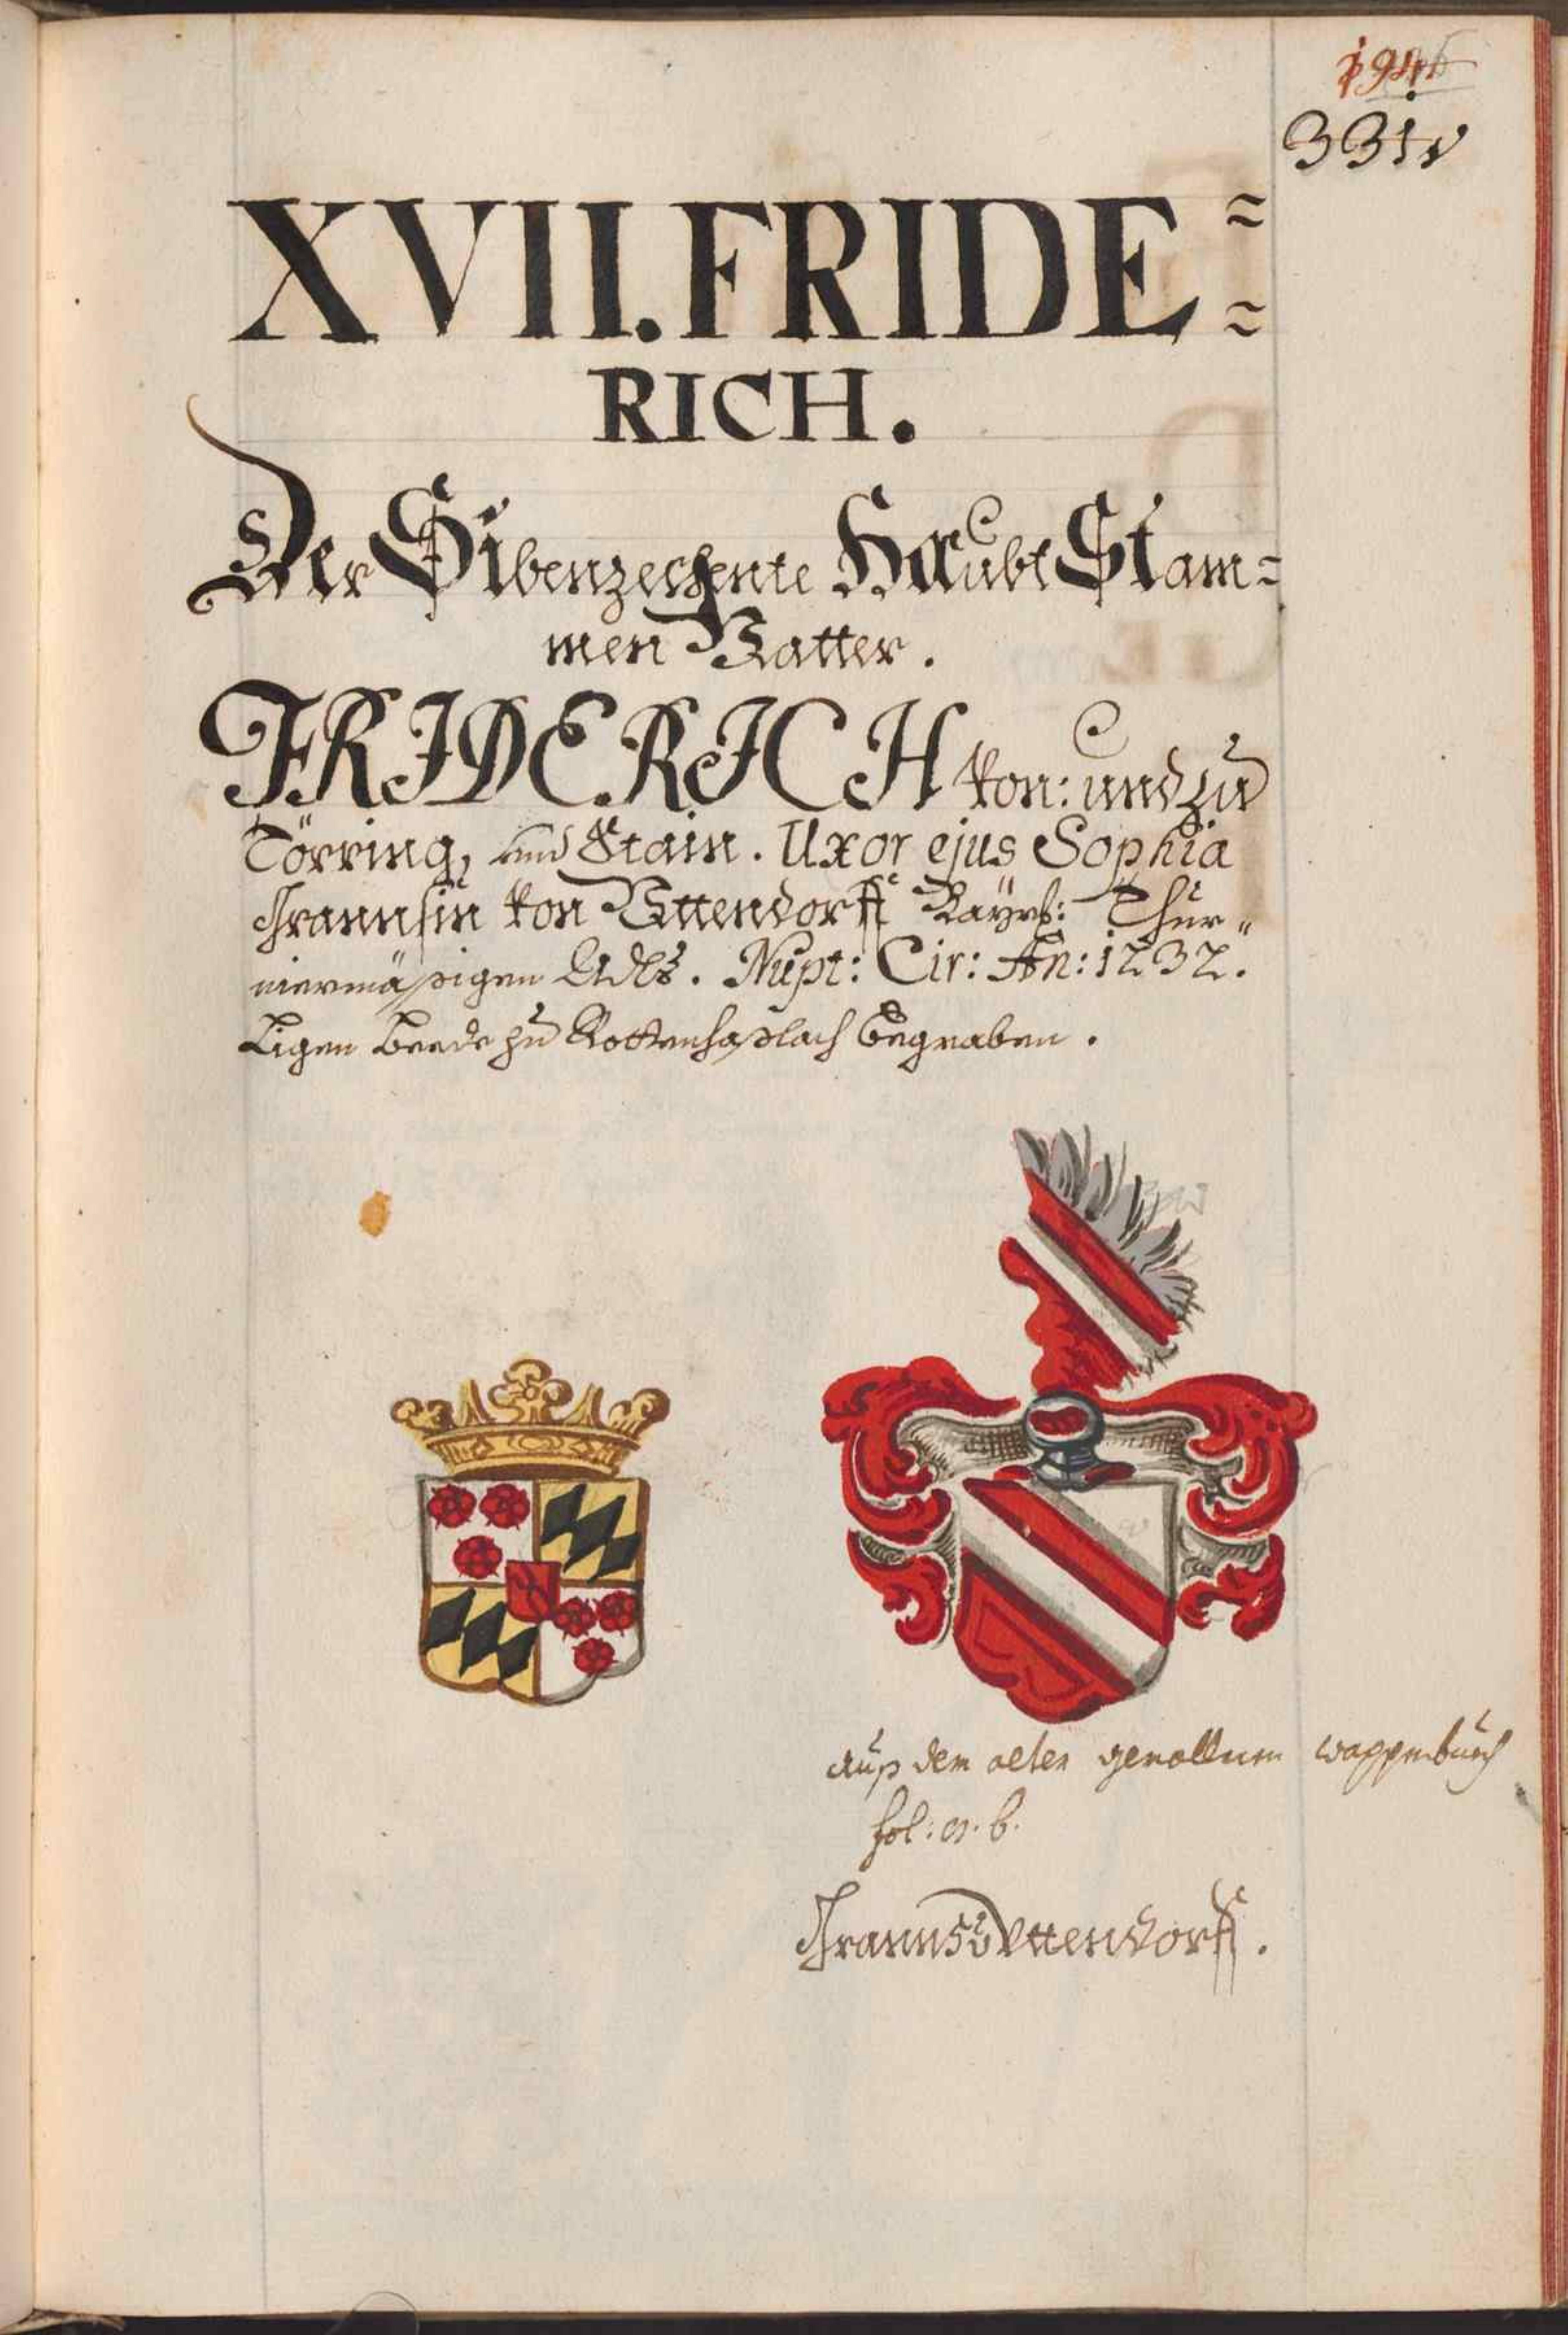 331
XVII. FRIDE=
RICH.
Der Sibenzechente Haubt Stam=
men Vatter.
FRIDERICH von: und zu
Törring, und Stain. Uxor ejus Sophia
Frannsin von Uttendorff Bayrs: Thur„
niermäßigen Adls. Nupt: Cir: An: 1232.
Ligen beede zu Rottenhaslach begraben.
auß dem alten wappenbuech
fol:
Franns v Uttendorff.